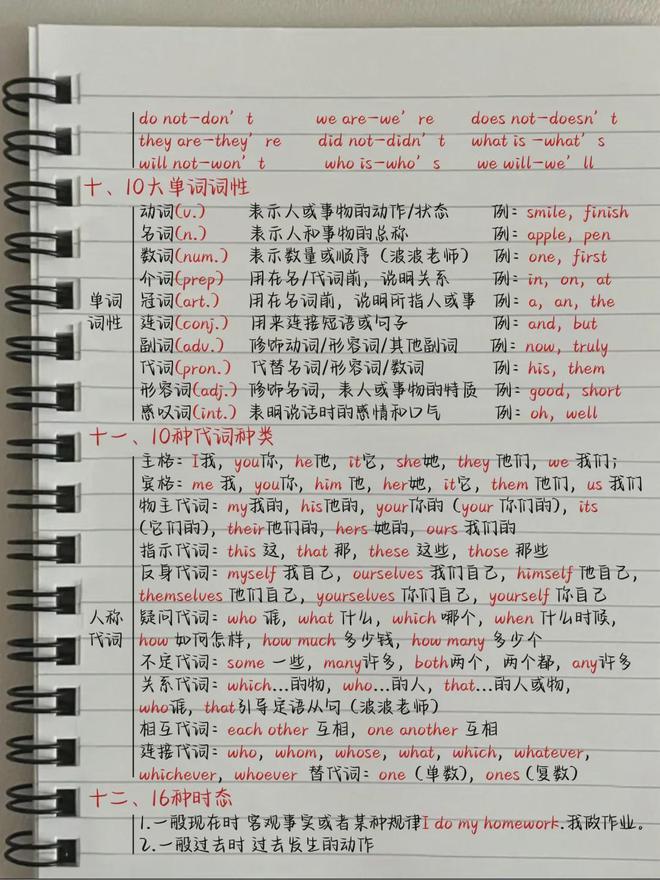 do not-don't we are-we're does not-doesn't
they are-they're did not-didn't what is -what's
will not-won't who is-who's we will-we'll
十、10大单词词性
动词(v.) 表示人或事物的动作/状态 例：smile, finish
名词(n.) 表示人和事物的总称 例：apple, pen
数词(num.) 表示数量或顺序（波波老师） 例：one, first
介词(prep) 用在名/代词前，说明关系 例：in, on, at
单词 冠词(art.) 用在名词前，说明所指人或事 例：a, an, the
词性 连词(conj.) 用来连接短语或句子 例：and, but
副词(adv.) 修饰动词/形容词/其他副词 例：now, truly
代词(pron.) 代替名词/形容词/数词 例：his, them
形容词(adj.) 修饰名词，表人或事物的特质 例：good, short
感叹词(int.) 表明说话时的感情和口气 例：oh, well
十一、10种代词种类
主格：I我, you你, he他, it它, she她, they 他们, we 我们；
宾格：me 我, you你, him 他, her她, it它, them 他们, us 我们
物主代词：my我的, his他的, your你的（your 你们的）, its
(它们的), their他们的, hers 她的, ours 我们的
指示代词：this 这, that 那, these 这些, those 那些
反身代词：myself 我自己, ourselves 我们自己, himself 他自己,
themselves 他们自己, yourselves 你们自己, yourself 你自己
人称 疑问代词：who 谁, what 什么, which 哪个, when 什么时候,
代词 how 如何怎样, how much 多少钱, how many 多少个
不定代词：some 一些, many许多, both两个, 两个都, any许多
关系代词：which...的物, who...的人, that...的人或物,
who谁, that引导定语从句（波波老师）
相互代词：each other 互相, one another 互相
连接代词：who, whom, whose, what, which, whatever,
whichever, whoever 替代词：one（单数）, ones（复数）
十二、16种时态
1.一般现在时 客观事实或者某种规律I do my homework.我做作业。
2.一般过去时 过去发生的动作